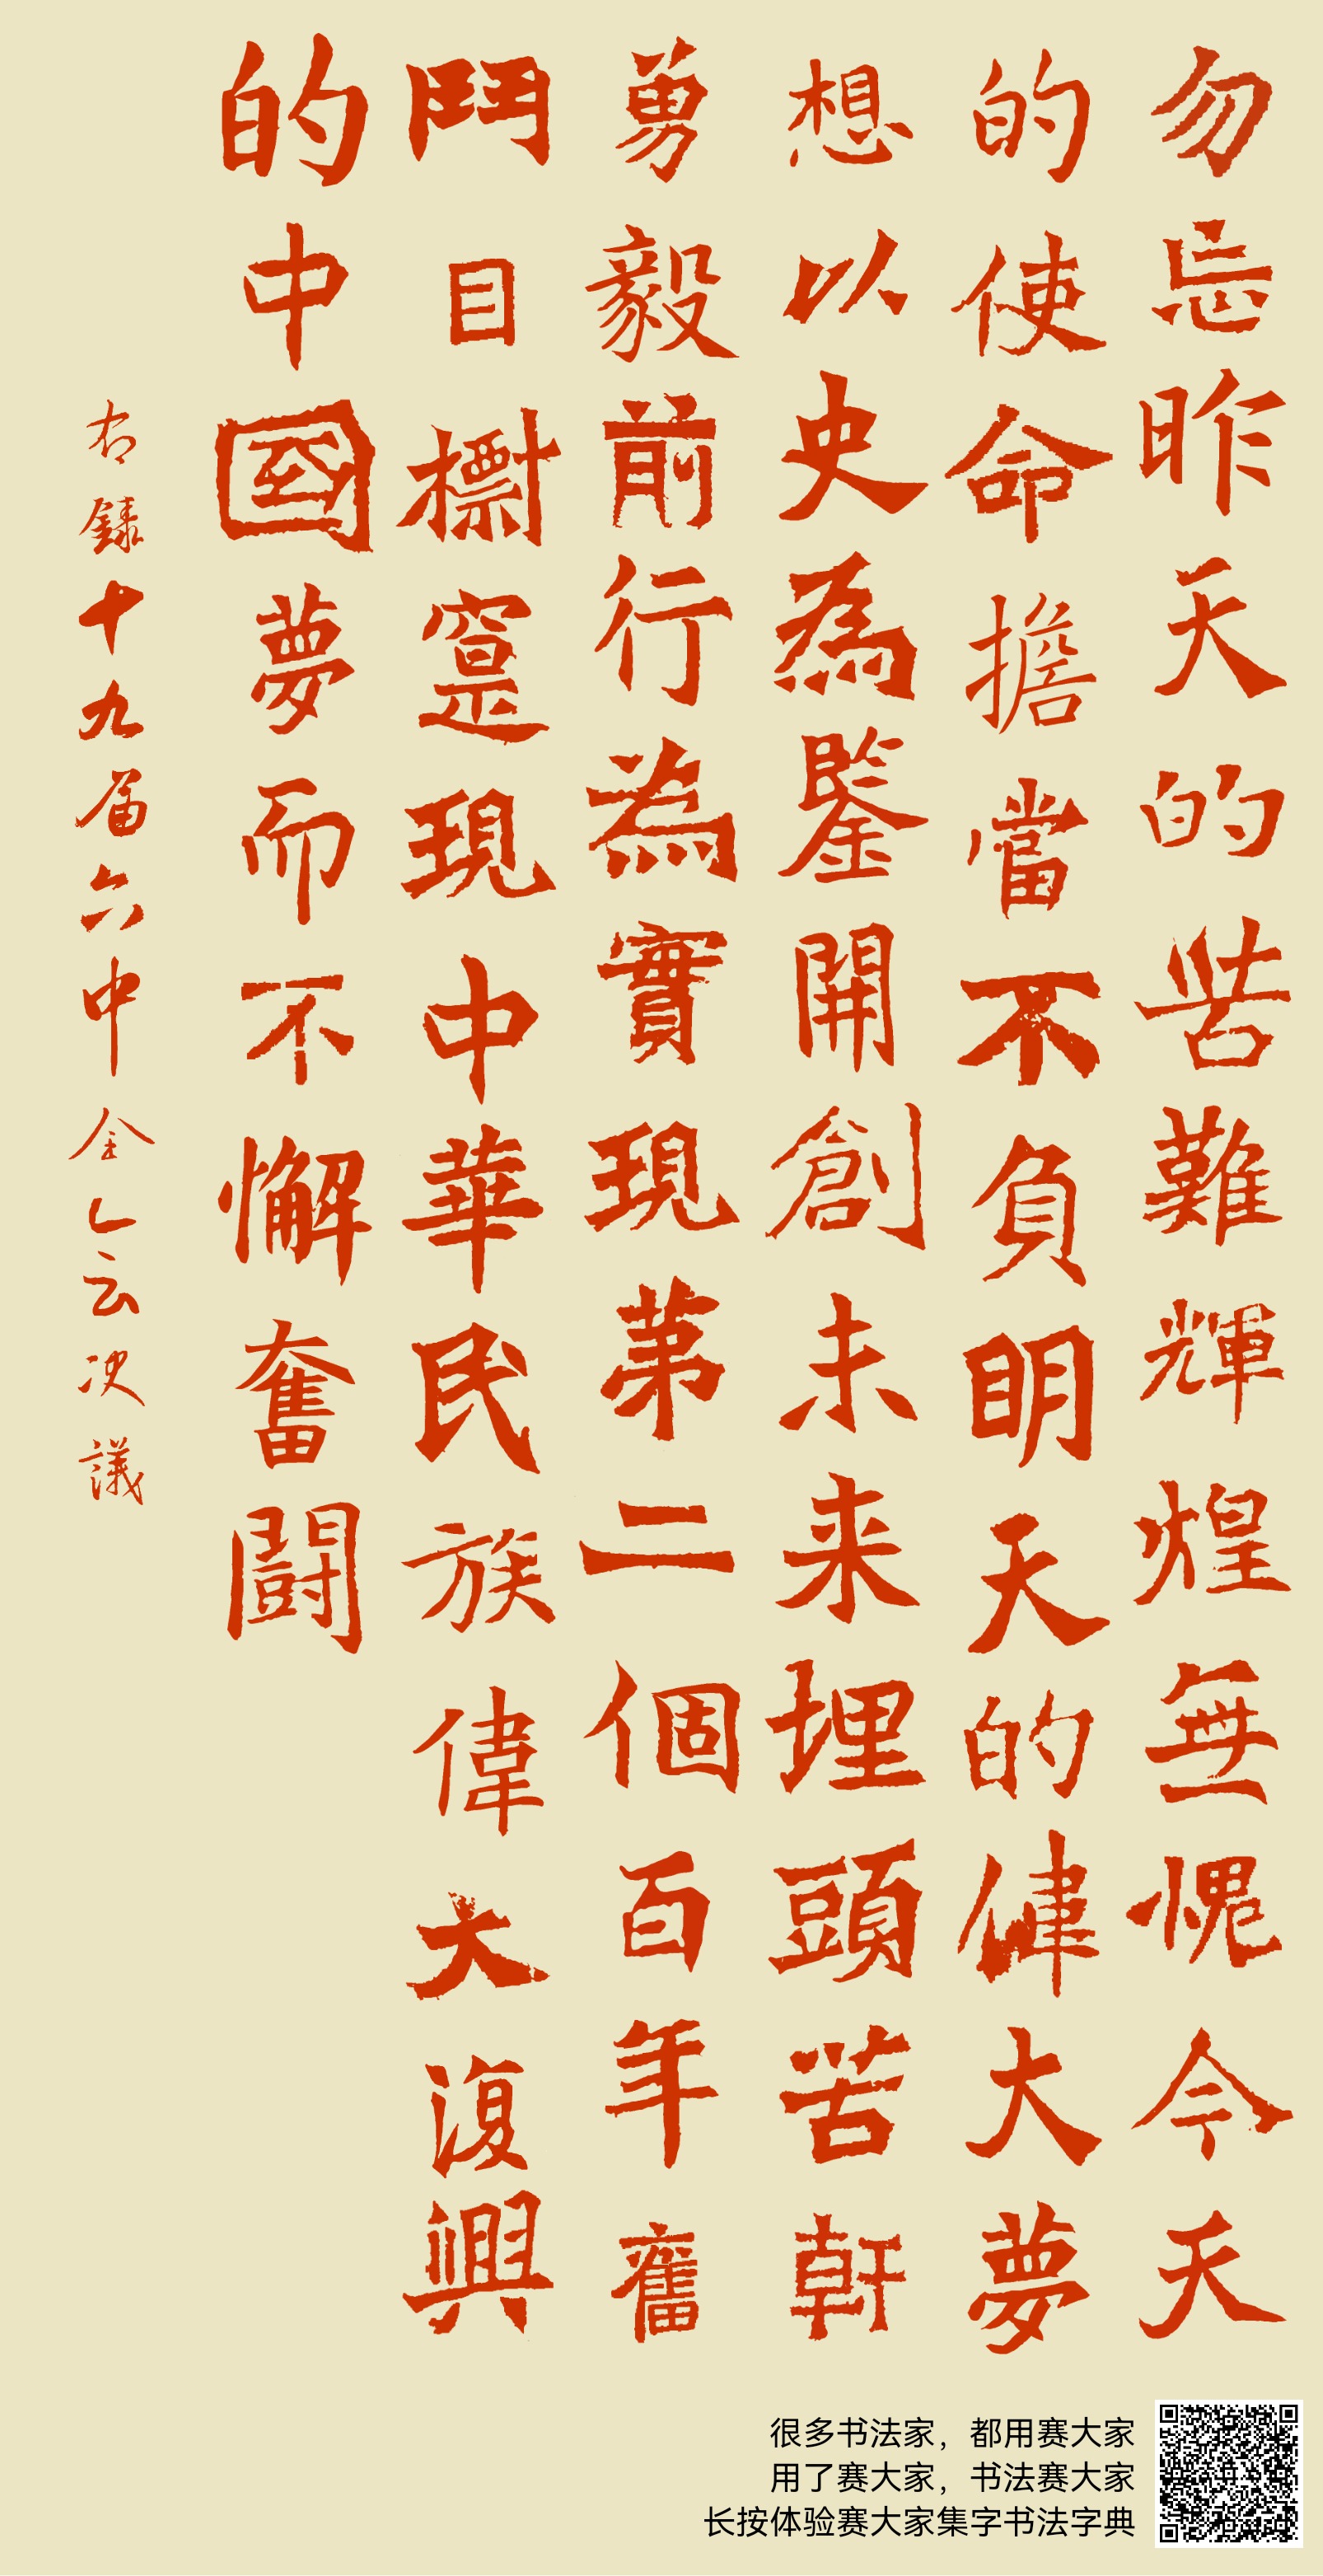 勿忘昨天的苦難輝煌無愧今天
的使命擔當不負明天的偉大夢
想以史為鑒開創未来埋頭苦軒
勇毅前行為實現第二個百年奮
鬥目標寔現中華民族偉大復興
的中國夢而不懈奮鬪
右錄十九届六中全会云决議
很多书法家，都用赛大家
用了赛大家，书法赛大家
长按体验赛大家集字书法字典